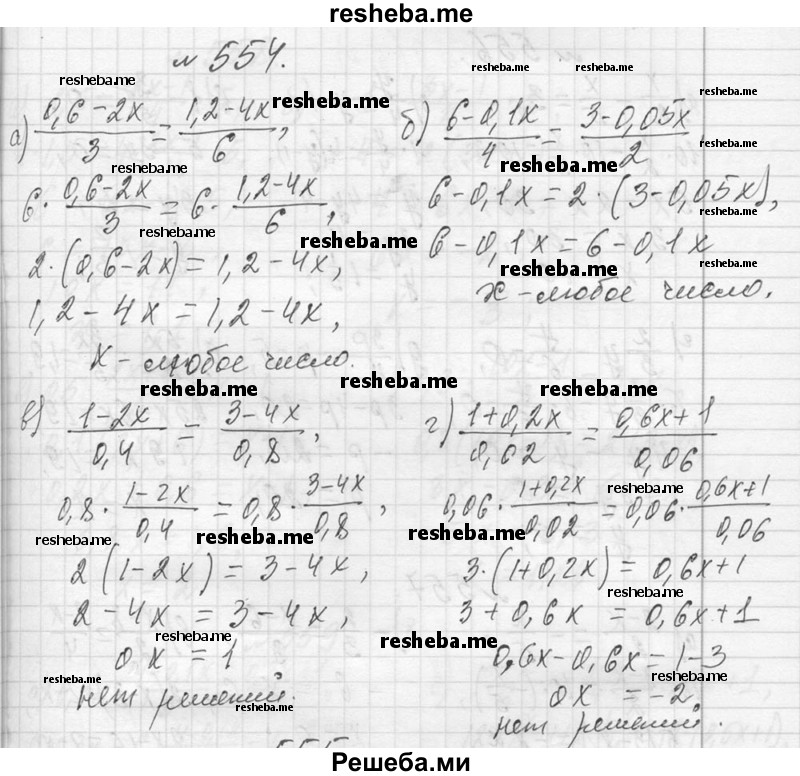 resheba.me
№ 554.
resheba.me resheba.me resheba.me
а) (0,6-2x)/3 = (1,2-4x)/6, resheba.me б) (6-0,1x)/4 = (3-0,05x)/2 resheba.me
resheba.me resheba.me
6·(0,6-2x)/3 = 6·(1,2-4x)/6, 6-0,1x = 2·(3-0,05x), resheba.me
resheba.me resheba.me
2·(0,6-2x) = 1,2-4x, 6-0,1x = 6-0,1x
resheba.me resheba.me
1,2-4x = 1,2-4x, x - любое число.
x - любое число. resheba.me
resheba.me resheba.me
в) (1-2x)/0,4 = (3-4x)/0,8, г) (1+0,2x)/0,02 = (0,6x+1)/0,06 resheba.me
resheba.me
0,8·(1-2x)/0,4 = 0,8·(3-4x)/0,8, 0,06·(1+0,2x)/0,02 = 0,06·(0,6x+1)/0,06
resheba.me resheba.me resheba.me
2(1-2x) = 3-4x, 3·(1+0,2x) = 0,6x+1
resheba.me
2-4x = 3-4x, 3+0,6x = 0,6x+1
resheba.me resheba.me
0x = 1 0,6x-0,6x = 1-3
resheba.me resheba.me
нет решений. 0x = -2
resheba.me
нет решений.
555
Решеба.ми